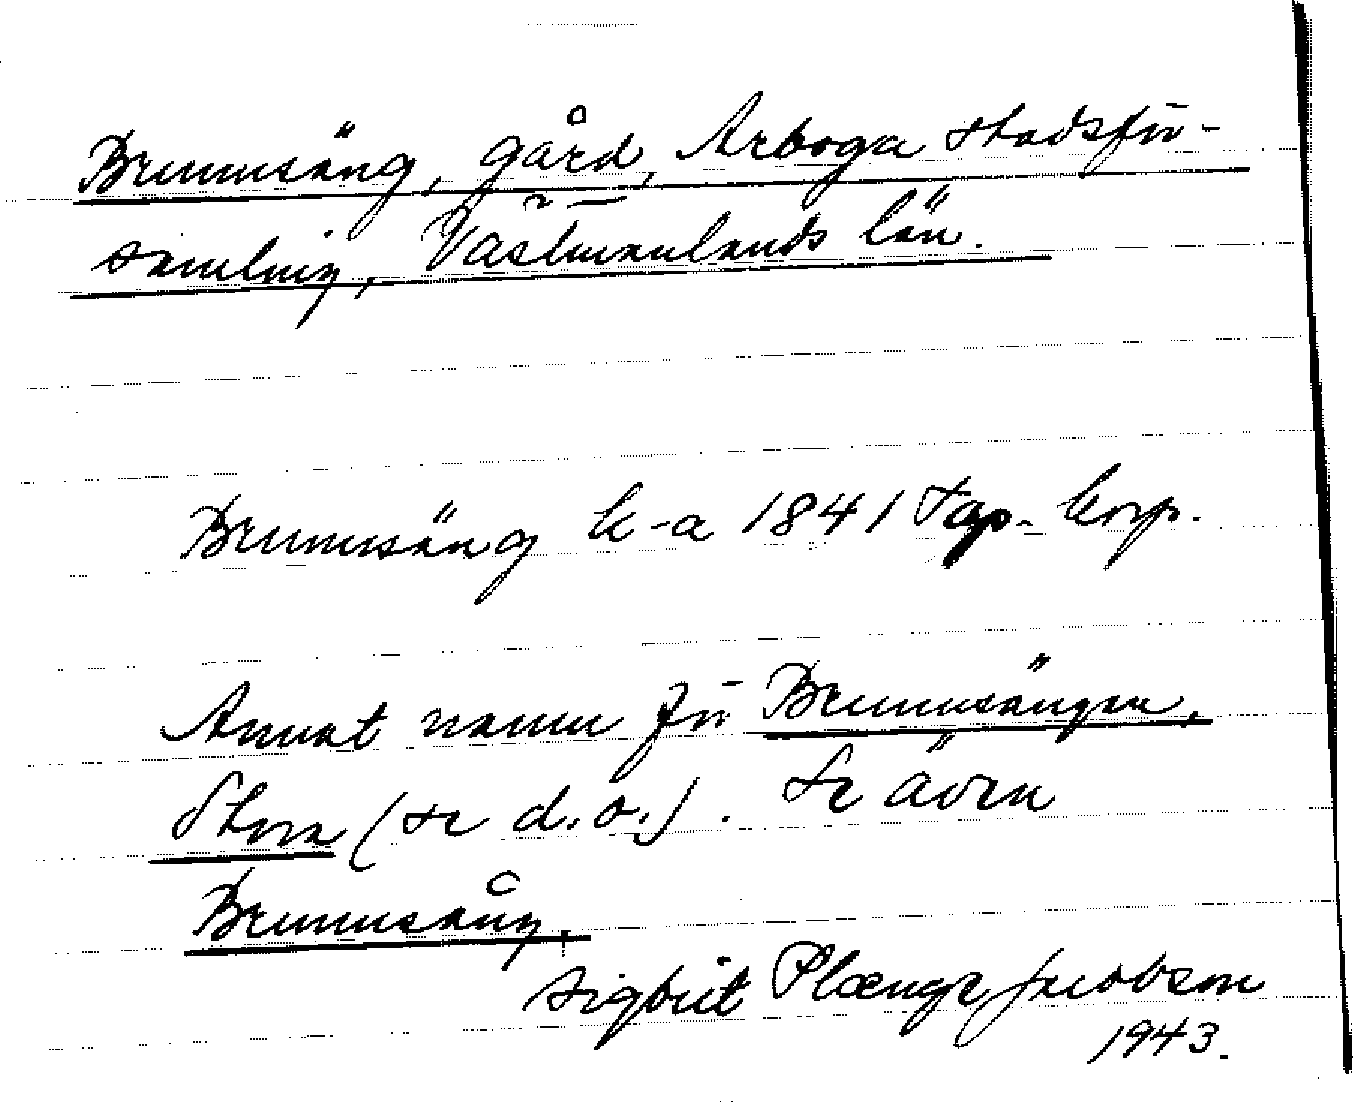 Brunnsäng, gård, Arboga stadsför-
samling, Västmanlands län.
Brunnsäng k-a 1841 Top. korp.
Annat namn för Brunnsängen,
Stora (se d.o.). Se även
Brunnsång.
Sigbrit Plænge Jacobson
1943.